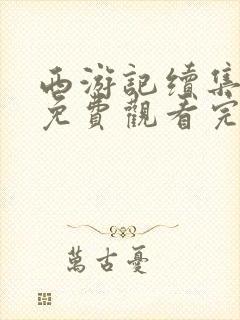 西游記續集
免費觀看完
萬古憂